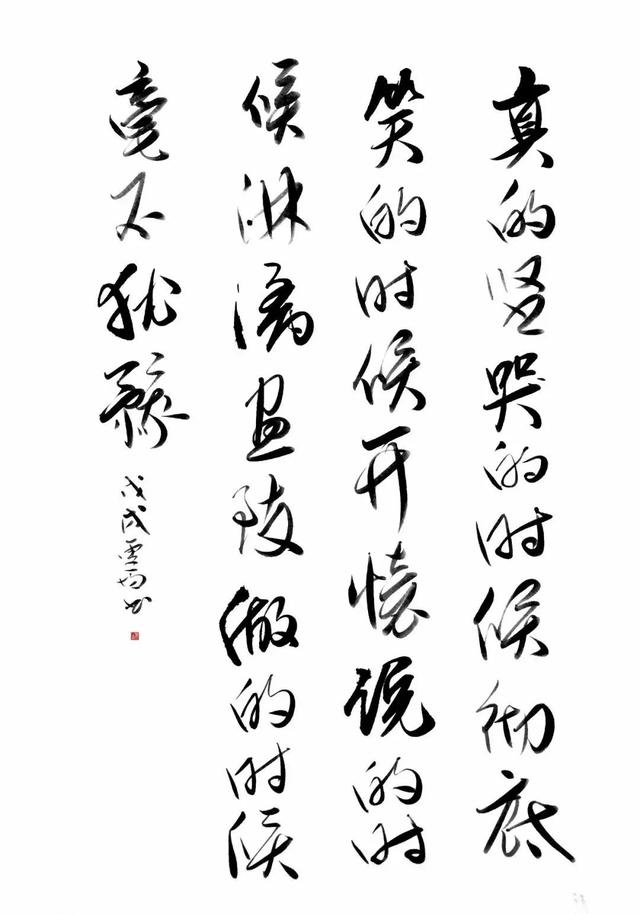 真的坚哭的时候彻底
笑的时候开懷说的时
候淋漓盡致做的时候
毫不犹豫
戊戌书